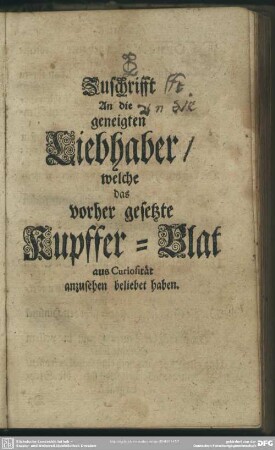 Zuschrifft
An die
geneigten
Liebhaber /
welche
das
vorher gesetzte
Kupffer = Blat
aus Curiosität
anzusehen beliebet haben.